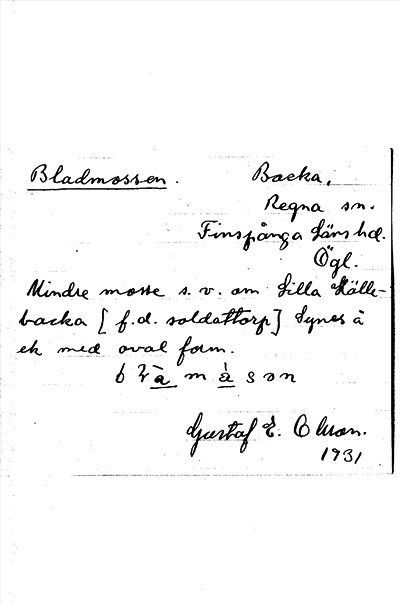 Bladmossen. Backa,
Regna sn.
Finspånga länshd.
Ögl.
Mindre mosse s.v. om Lilla Hälle-
backa [f.d. soldattorp] Synes å
ek med oval form.
màsɘn
Gustaf E. Olsson.
1931